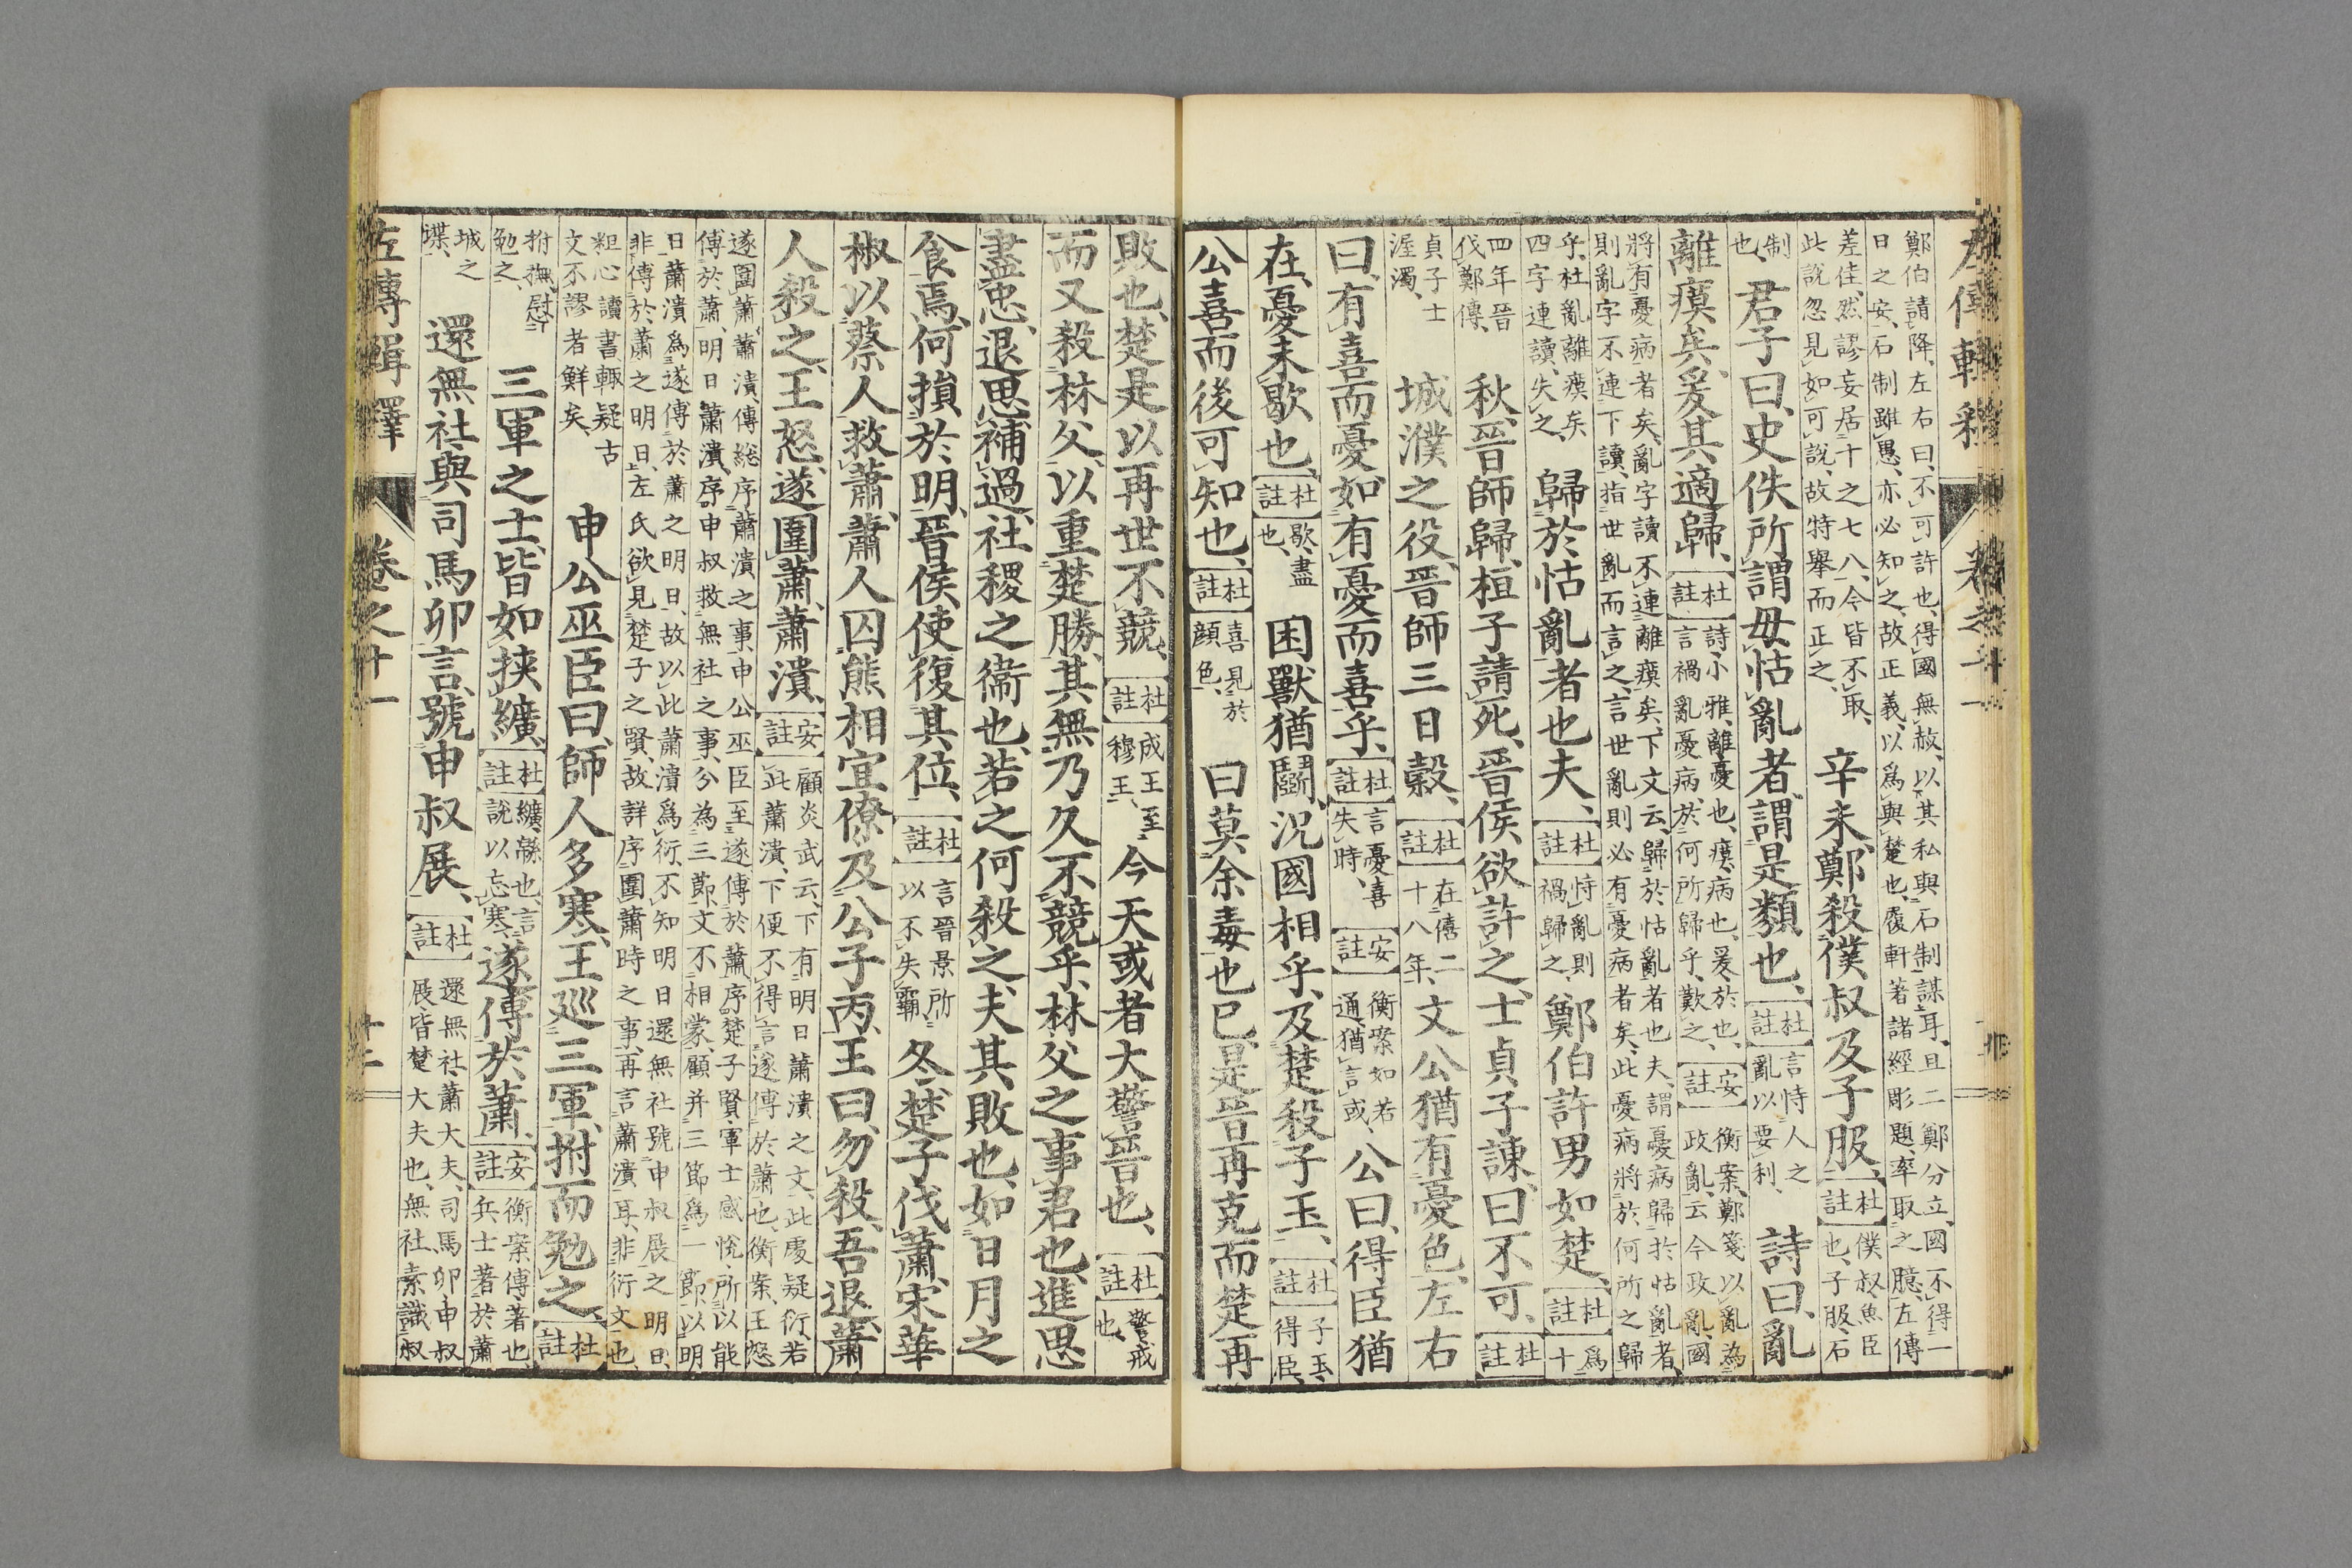 左傳輯釋 卷之十一
鄭伯請降、左右曰、不可許也、得國無赦、以其私與石制謀耳、且二鄭分立、國不得一
日之安、石制雖愚、亦必知之、故正義以爲與楚也、履軒著諸經彫題、率取之臆、左傳
差佳、然謬妄居十之七八、今皆不取、
此說忽見如可說、故特舉而正之、
辛未、鄭殺僕叔及子服、杜註 僕叔魚臣
也、子服、石
制
也、
君子曰、史佚所謂毋怙亂者、謂是類也、杜註 言恃人之
亂以要利、
詩曰、亂
離瘼矣、爰其適歸、杜註 詩小雅、離、憂也、瘼、病也、爰、於也、
言禍亂憂病、於何所歸乎、歎之、
安註 衡案、鄭箋以亂為
政亂、云今政亂、國
將有憂病者矣、亂字讀、不連離瘼矣、下文云、歸於怙亂者也夫、謂憂病歸於怙亂者、
則亂字不連下讀、指世亂而言之、言世亂則必有憂病者矣、此憂病將於何所之歸
乎、杜亂離瘼矣
四字連讀、失之、
歸於怙亂者也夫、杜註 恃亂則
禍歸之、
鄭伯許男如楚、杜註 爲
十
四年晉
伐鄭傳、
秋、晉師歸、桓子請死、晉侯欲許之、士貞子諫曰、不可、杜註
貞子士
渥濁、
城濮之役、晉師三日穀、杜註 在僖二
十八年、
文公猶有憂色、左右
曰、有喜而憂、如有憂而喜乎、杜註 言憂喜
失時、
安註 衡案如若
通、猶言或、
公曰、得臣猶
在、憂未歇也、杜註 歇、盡
也、
困獸猶鬭、況國相乎、及楚殺子玉、杜註 子玉、
得臣、
公喜而後可知也、杜註 喜見於
顔色、
曰、莫余毒也已、是晉再克而楚再
敗也、楚是以再世不競、杜註 成王至
穆王、
今天或者大警晉也、杜註 警、戒
也、
而又殺林父、以重楚勝、其無乃久不競乎、林父之事君也、進思
盡忠、退思補過、社稷之衞也、若之何殺之、夫其敗也、如日月之
食焉、何損於明、晉侯使復其位、杜註 言晉景所
以不失霸、
冬、楚子伐蕭、宋華
椒以蔡人救蕭、蕭人囚熊相宜僚及公子丙、王曰、勿殺、吾退、蕭
人殺之、王怒、遂圍蕭、蕭潰、安註 顧炎武云、下有明日蕭潰之文、此處疑衍、若
此蕭潰、下便不得言遂傅於蕭也、衡案、王怒
遂圍蕭、蕭潰、傳総序蕭潰之事、申公巫臣至遂傅於蕭、序楚子賢、軍士感悅、所以能
傅於蕭、明日蕭潰、序申叔救無社之事、分為三節、文不相蒙、顧并三節爲一節、以明
日蕭潰爲遂傅於蕭之明日、故以此蕭潰爲衍、不知明日還無社號申叔展之明日、
非傅於蕭之明日、左氏欲見楚子之賢、故詳序圍蕭時之事、再言蕭潰耳、非衍文也、
粗心讀書、輙疑古
文不謬者鮮矣、
申公巫臣曰、師人多寒、王巡三軍、拊而勉之、杜註
拊、撫慰
勉之、
三軍之士、皆如挾纊、杜註 纊、緜也、言
說以忘寒、
遂傅於蕭、安註 衡案、傅、著也、
兵士著於蕭
城之
堞、
還無社與司馬卯言、號申叔展、杜註 還無社、蕭大夫、司馬卯、申叔
展、皆楚大夫也、無社、素識叔
左傳輯釋 卷之十一 十二